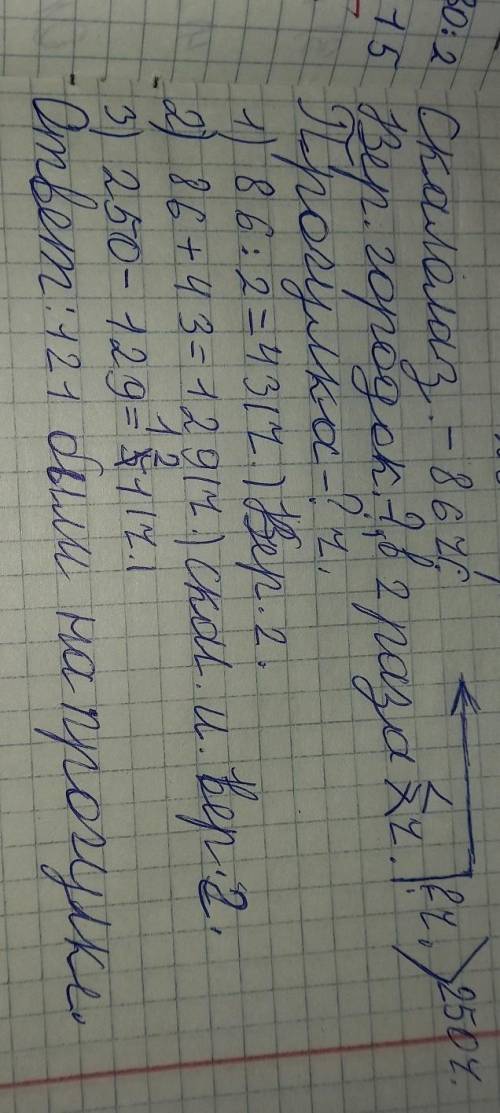 80:2
15
Скалолаз. - 86 ч.
Вер. городск. - ?, в 2 раза < ч. ? ч. 250 ч.
Прогулка - ? ч.
1) 86 : 2 = 43 (ч.) Вер. г.
2) 86 + 43 = 129 (ч.) скал. и. Вер. г.
3) 250 - 129 = 121 (ч.)
Ответ: 121 были на прогулке.